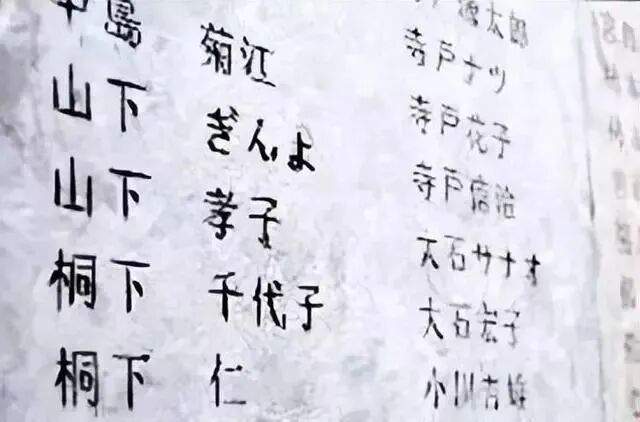 中島 菊江
山下 ぎんよ
山下 孝子
桐下 千代子
桐下 仁
太郎
寺戸ナツ
寺戸花子
寺戸信治
大石サナオ
大石宏子
小川吉雄